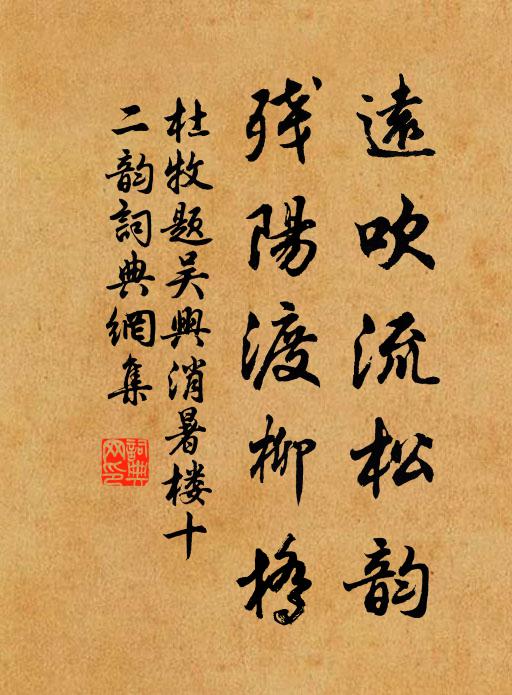 遠吹流松韵
残陽渡柳橋
杜牧题吴興消暑楼十
二韵詞典網集
詞典
网印